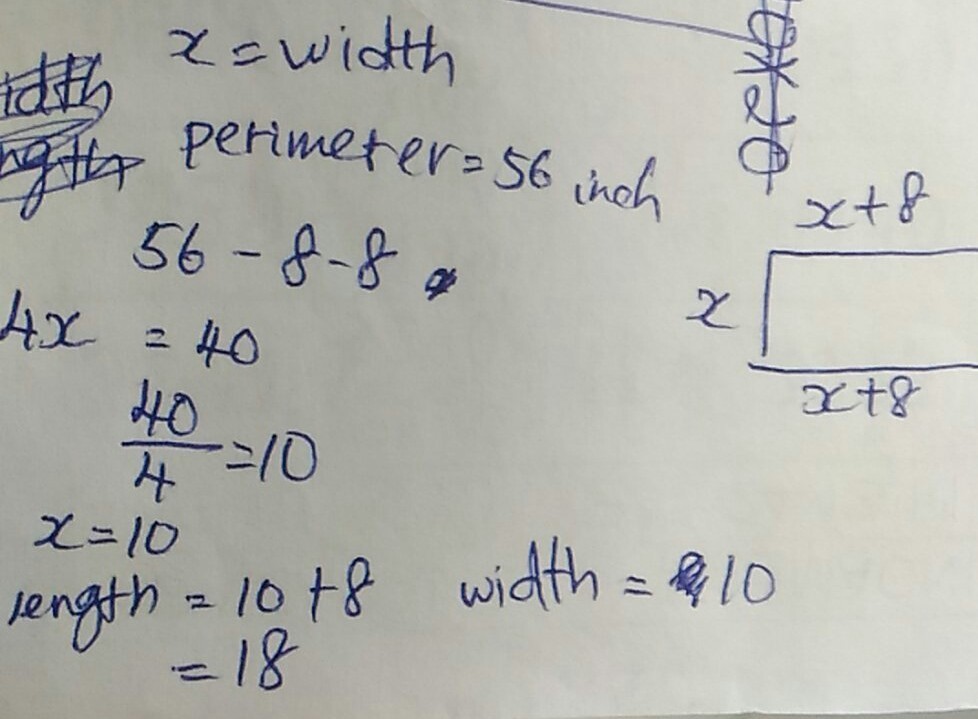 x = width
perimeter = 56 inch
56 - 8 - 8
4x = 40
40
4
= 10
x = 10
length = 10 + 8
= 18
width = 10
x + 8
x
x + 8